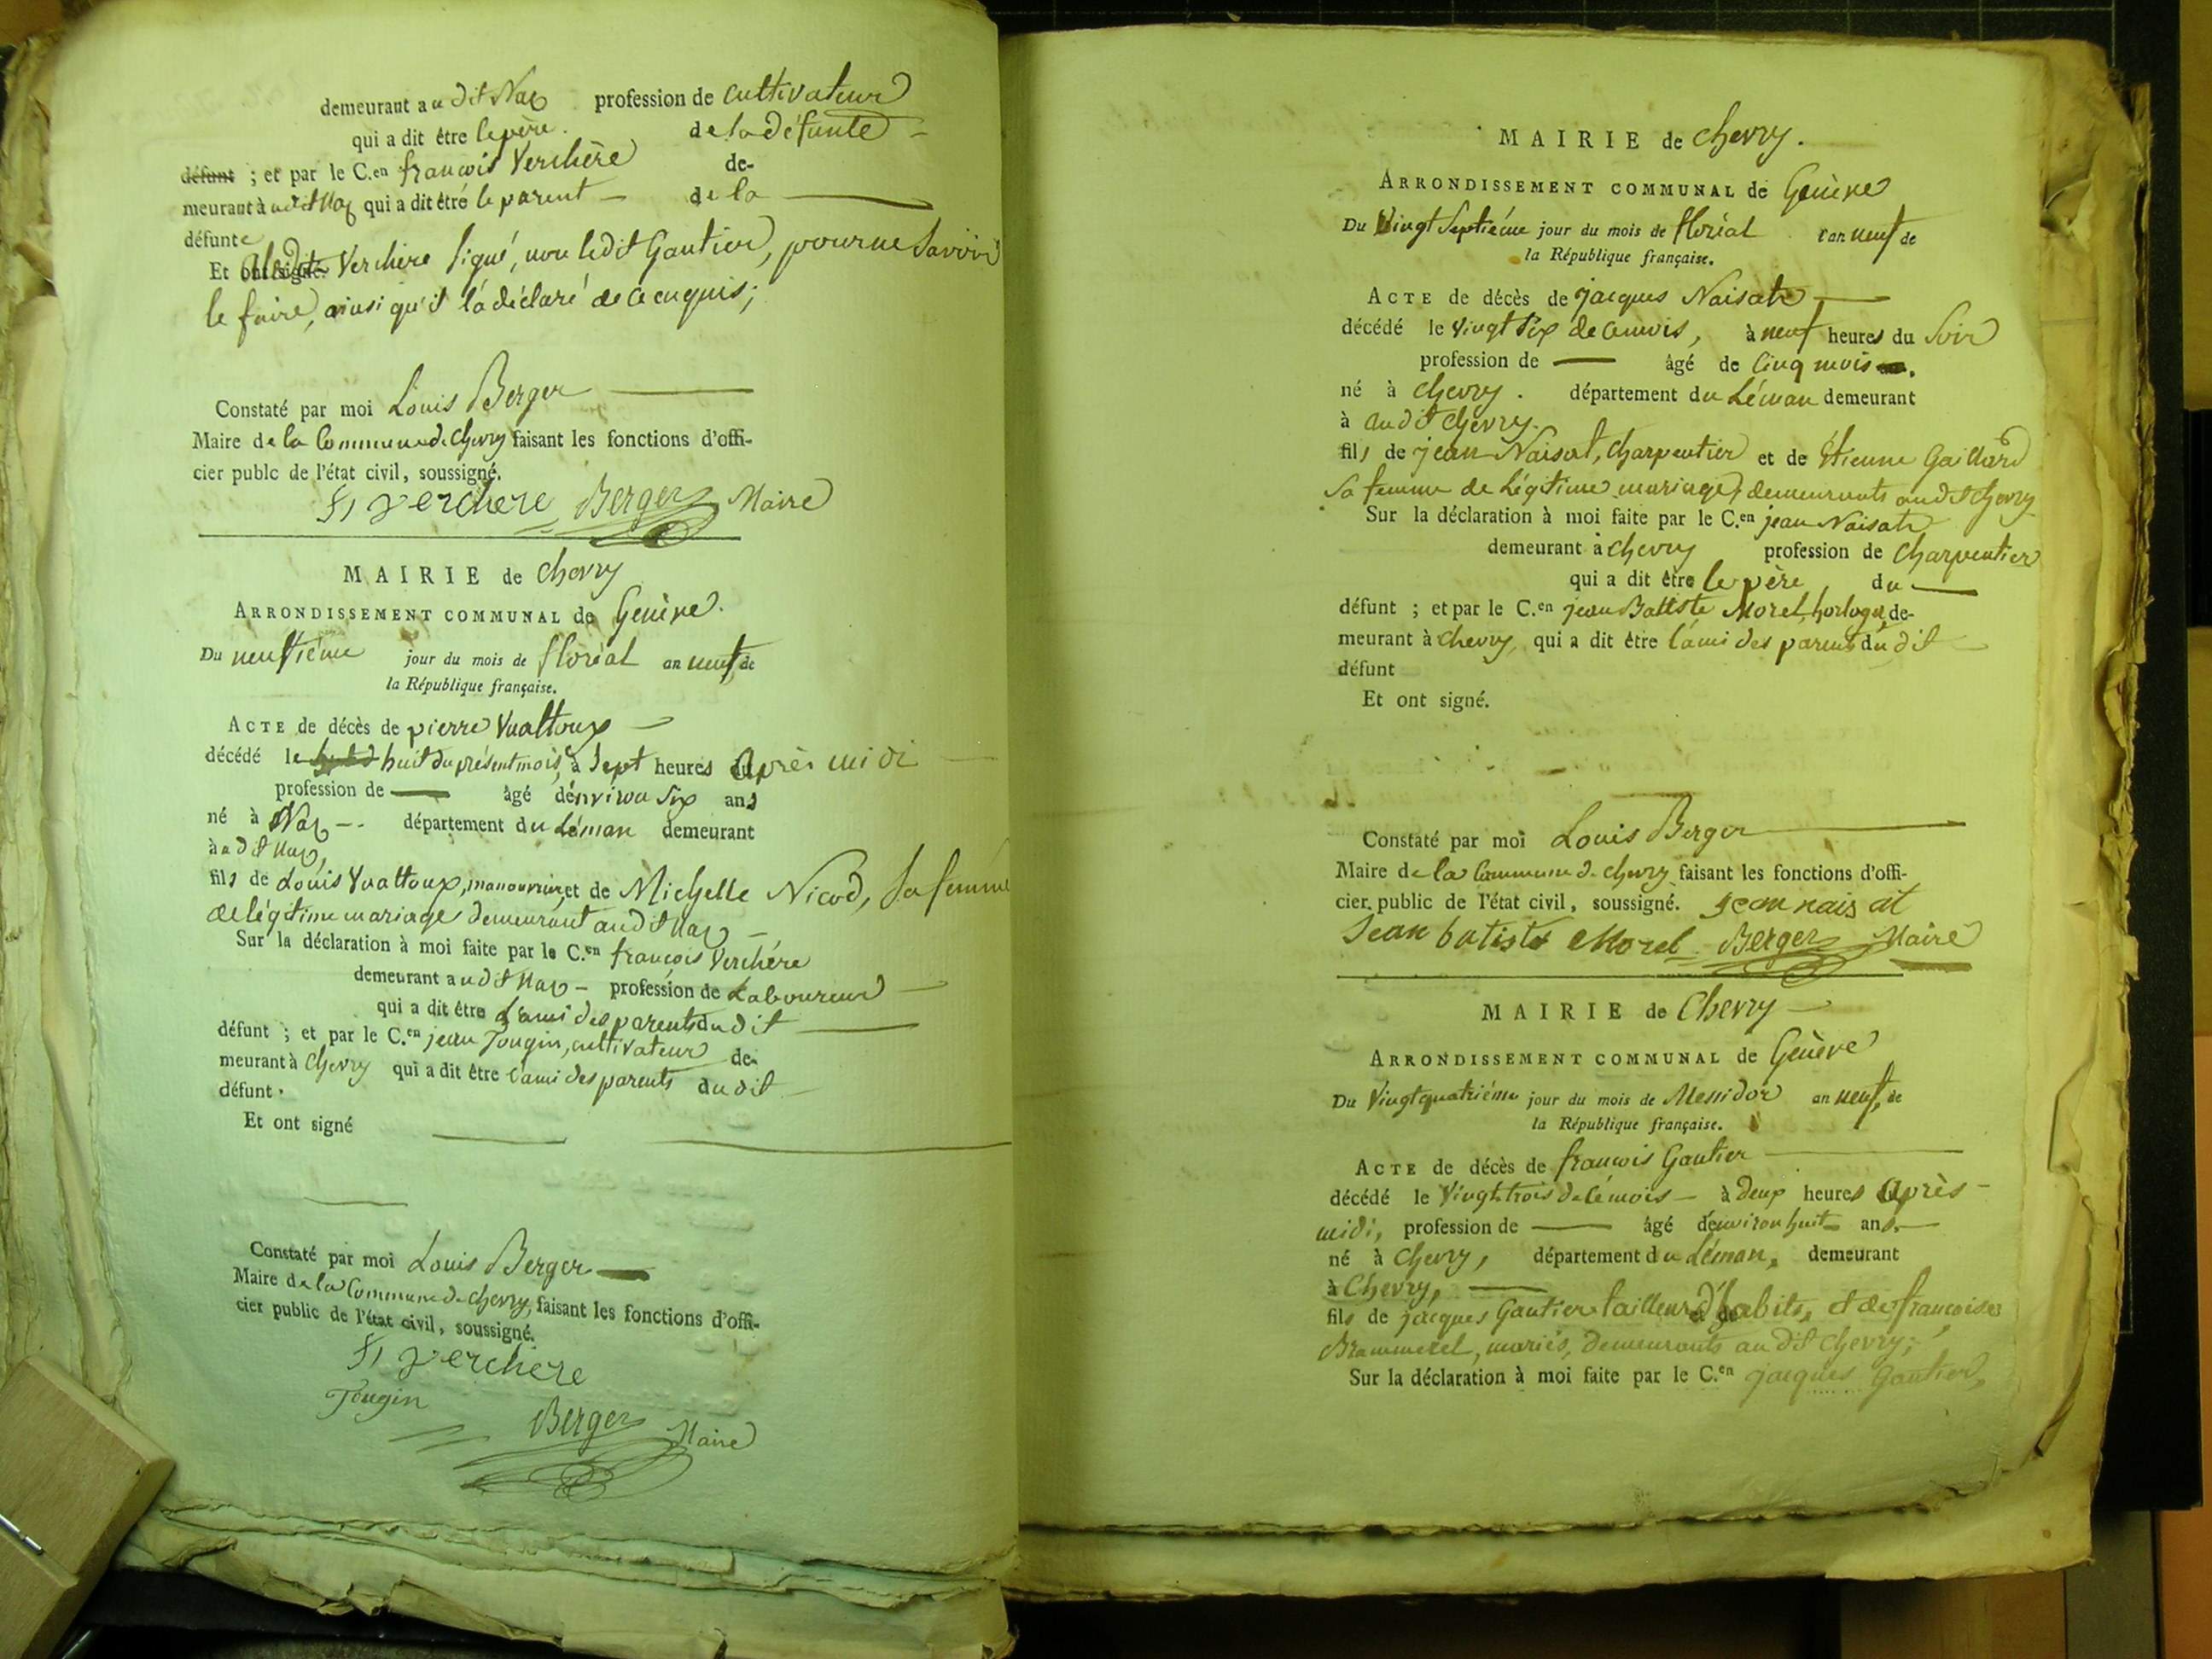 demeurant a u dit Nax profession de cultivateur
qui a dit être le père. de la défunte
défunt ; et par le C.en françois Verchère de-
meurant à udit Nax qui a dit être le parent de la
défunte
Et ont signé. Verchère signé, non ledit Gautier, pour ne savoir
le faire, ainsi qu'il l'a déclaré de ce enquis;
Constaté par moi Louis Berger
Maire de la Commune de Chevry faisant les fonctions d'offi-
cier publc de l'état civil, soussigné.
fs verchere Berger Maire
MAIRIE de Chevry
ARRONDISSEMENT COMMUNAL de Genève.
Du neuvième jour du mois de floréal an neuf, de
la République française.
ACTE de décès de pierre Vuattoux
décédé le huit du présent mois, à Sept heures du après midi
profession de âgé d'environ Six ans
né à Nax département du Léman demeurant
à u dit Nax,
fils de Louis Vuattoux, manouvrier, et de Michelle Nicod, Sa femme
de légitime mariage demeurant audit Nax
Sur la déclaration à moi faite par le C.en françois Verchère
demeurant a udit Nax profession de Laboureur
qui a dit être l'ami des parents du dit
défunt ; et par le C.en jean Tougin, cultivateur de-
meurant à Chevry qui a dit être l'ami des parents du dit
défunt.
Et ont signé
Constaté par moi Louis Berger
Maire de la Commune de Chevry, faisant les fonctions d'offi-
cier public de l'état civil, soussigné.
fs verchere
Tougin
Berger Maire
MAIRIE de Chevry.
ARRONDISSEMENT COMMUNAL de Genève
Du Vingt Septiéme jour du mois de floréal l'an neuf de
la République française.
ACTE de décès de jacques Naisat
décédé le vingt Six de ce mois, à neuf heures du Soir
profession de âgé de Cinq mois
né à Chevry. département du Léman demeurant
à audit Chevry.
fils de jean Naisat, Charpentier et de Étienne Gaillard
Sa femme de Légitime mariage, demeurants audit Chevry
Sur la déclaration à moi faite par le C.en jean Naisat
demeurant à Chevry profession de Charpentier
qui a dit être le père du
défunt ; et par le C.en jean Battiste Morel, horloger, de-
meurant à Chevry, qui a dit être l'ami des parents du dit
défunt
Et ont signé.
Constaté par moi Louis Berger
Maire de la Commune de Chevry faisant les fonctions d'offi-
cier public de l'état civil, soussigné. jean naisat
Jean batiste Morel Berger Maire
MAIRIE de Chevry
ARRONDISSEMENT COMMUNAL de Genève
Du Vingtquatriéme jour du mois de Messidor an neuf, de
la République française.
ACTE de décès de françois Gautier
décédé le Vingt trois de ce mois à deux heures après
midi, profession de âgé d'environ huit ans.
né à Chevry, département du Léman, demeurant
à Chevry,
fils de jacques Gautier tailleur d'habits, et de françoise
Brammerel, mariés, demeurants au dit Chevry;
Sur la déclaration à moi faite par le C.en jacques Gautier,